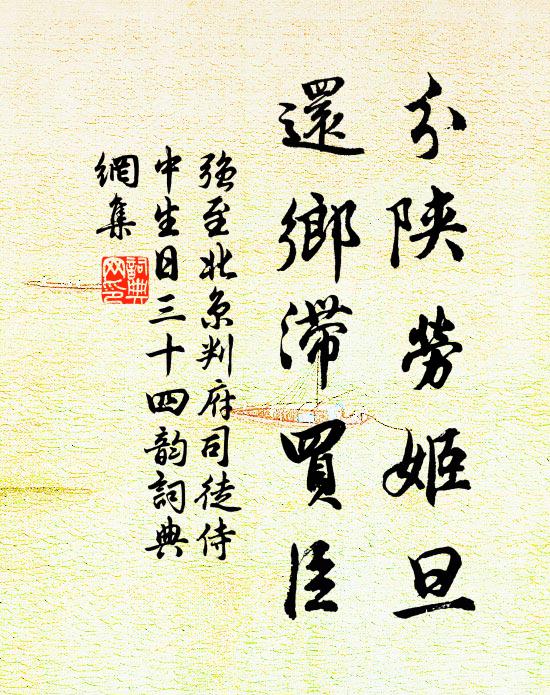 分陕勞姬旦
還鄉滯買臣
强至北京判府司徒侍
中生日三十四韵詞典
網集
詞典
网